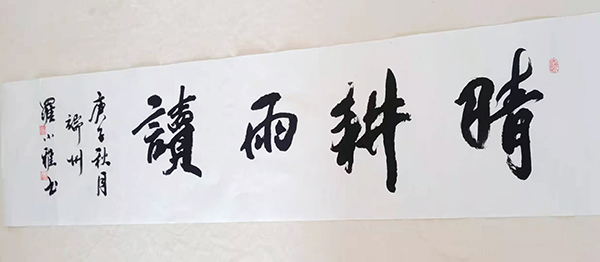 晴耕雨讀
庚子秋月
端州
羅小雅书